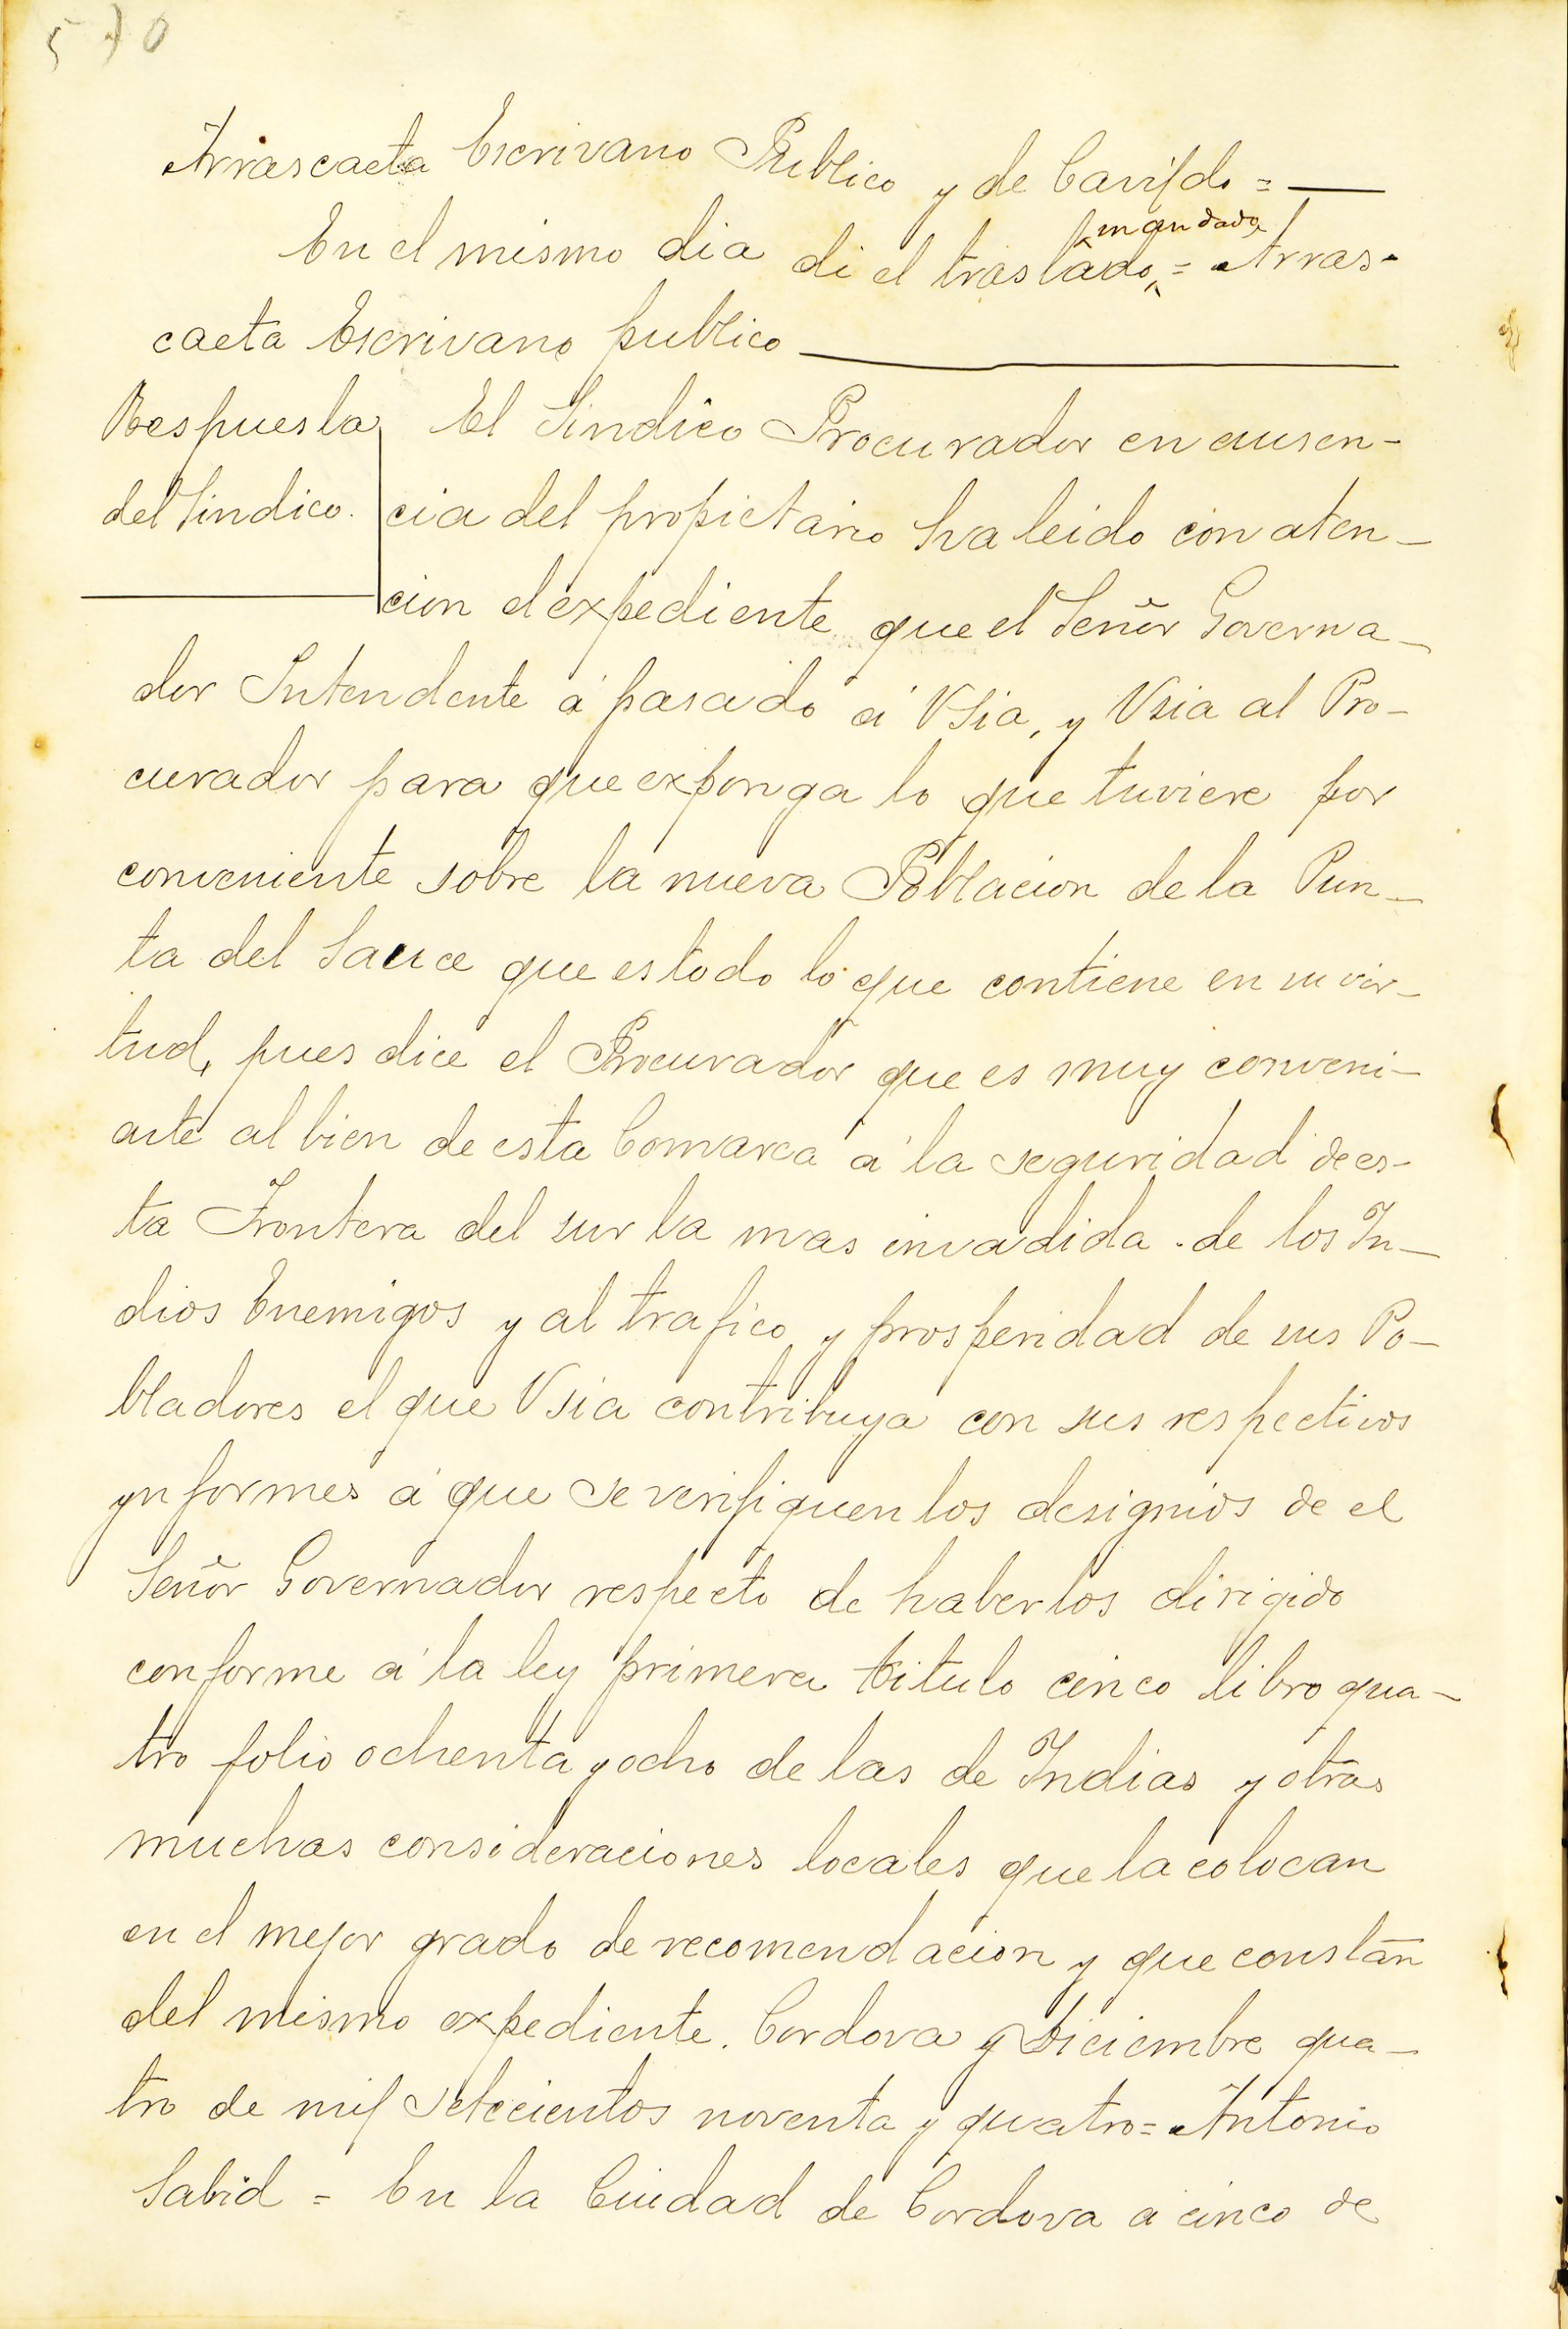 570
Arrascaeta Escrivano Publico y de Cavildo =
mandado
En el mismo dia di el traslado, = Arras-
caeta Escrivano publico
Respuesta
del Sindico.
El Sindico Procurador en ausen-
cia del propietario ha leido con aten-
cion el expediente que el Señor Governa-
dor Intendente á pasado á VSia, y Vsia al Pro-
curador para que exponga lo que tuviere por
conveniente sobre la nueva Poblacion de la Pun-
ta del Sauce que es todo lo que contiene en su vir-
tud, pues dice el Procurador que es muy conveni-
ente al bien de esta Comarca á la seguridad de es-
ta Frontera del sur la mas invadida de los In-
dios Enemigos y al trafico y prosperidad de sus Po-
bladores el que Vsia contribuya con sus respectivos
ynformes á que se verifiquen los designios de el
Señor Governador respecto de haberlos dirigido
conforme á la ley primera titulo cinco libro qua-
tro folio ochenta y ocho de las de Indias y otras
muchas consideraciones locales que la colocan
en el mejor grado de recomendacion y que constan
del mismo expediente. Cordova y Diciembre qua-
tro de mil setecientos noventa y quatro = Antonio
Sabid = En la Ciudad de Cordova á cinco de